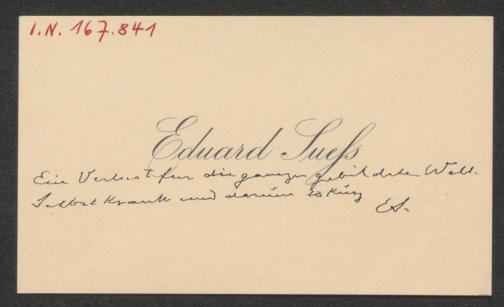 I.N. 167.841
Eduard Suess
Ein Verlust für die ganze gebildete Welt.
Selbst krank und darum so kurz
ES.